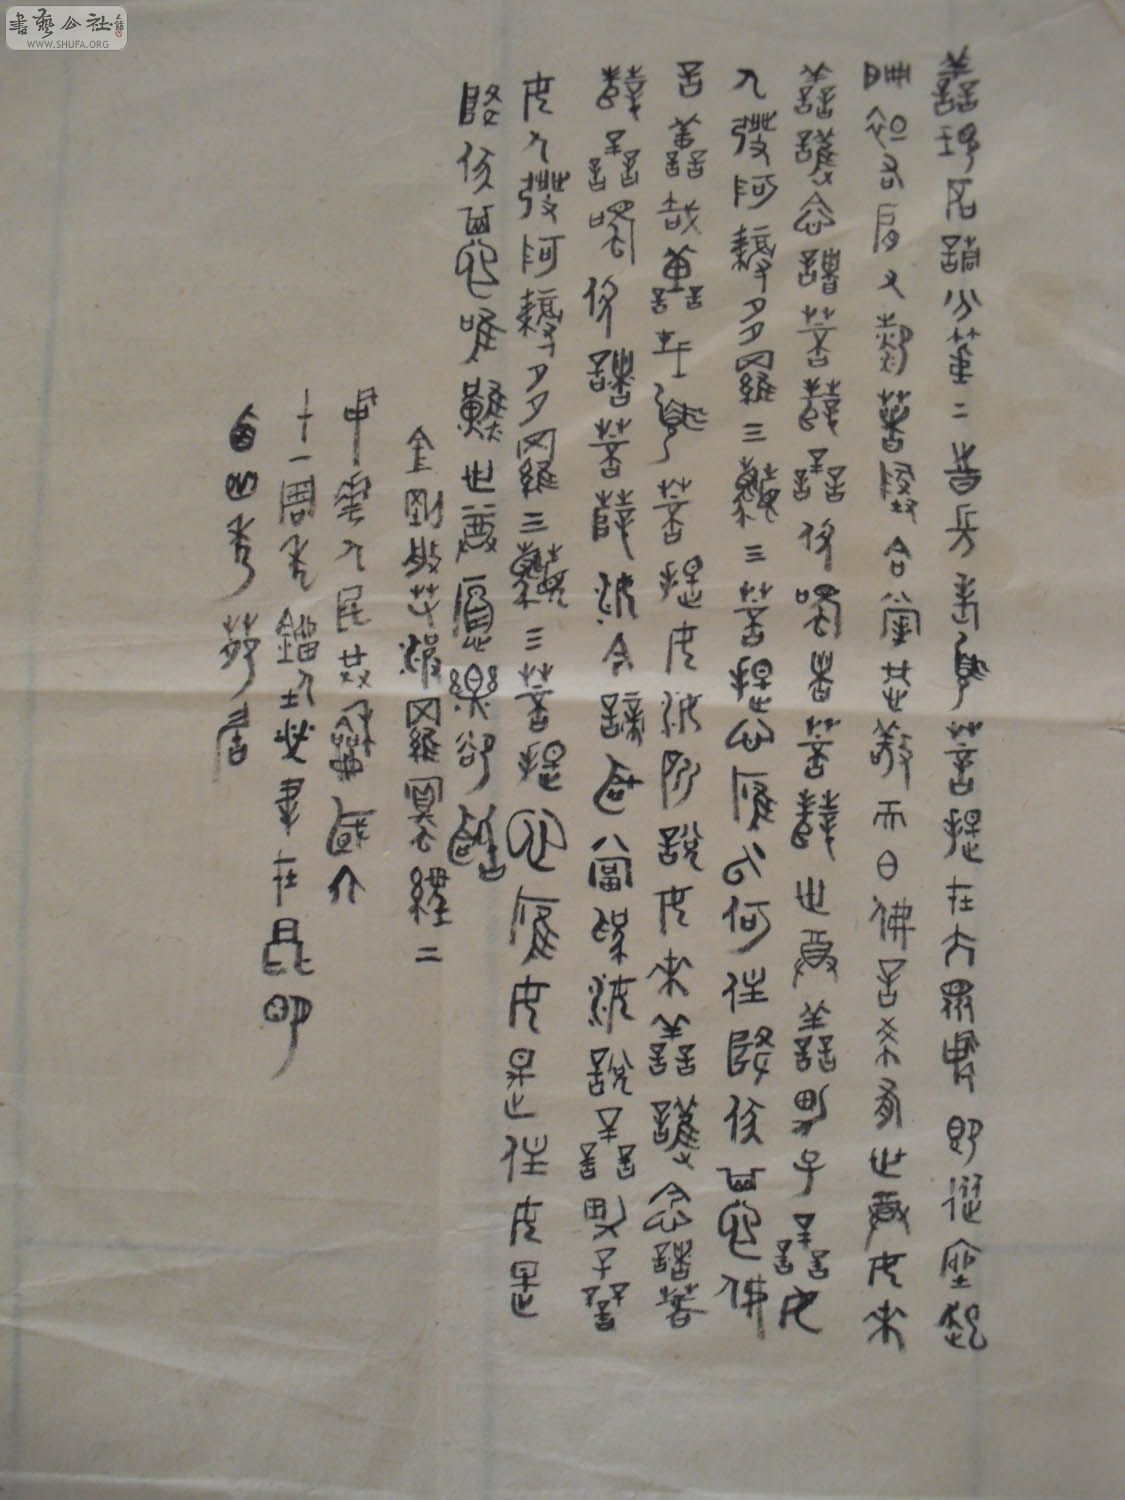 善現启請分第二 昔長老須菩提在大眾中即從座起
偏袒右肩右膝著地合掌恭敬而白佛言希有世尊如來
善護念諸菩薩善付囑諸菩薩世尊善男子善女
人發阿耨多羅三藐三菩提心應云何住降伏其心佛
言善哉善哉須菩提如汝所說如來善護念諸菩
薩善付囑諸菩薩汝今諦聽當為汝說善男子善
女人發阿耨多羅三藐三菩提心應如是住如是
降伏其心唯然世尊願樂欲聞
金剛般若波羅蜜經二
甲 人民 國
十一周年 於 在昆明
白 秀
書藝公社
WWW.SHUFA.ORG